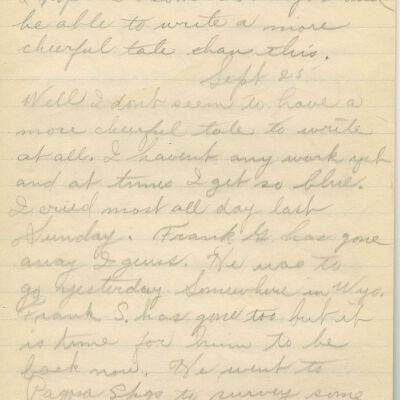 be able to write a more
cheerful tale than this.
Sept 25
Well I dont seem to have a
more cheerful tale to write
at all. I havent any work yet
and at times I get so blue.
I cried most all day last
Sunday. Frank G. has gone
away I guess. He was to
go yesterday. Somewhere in Wyo.
Frank S. has gone too but it
is time for him to be
back now. He went to
Pagosa Spgs to survey some